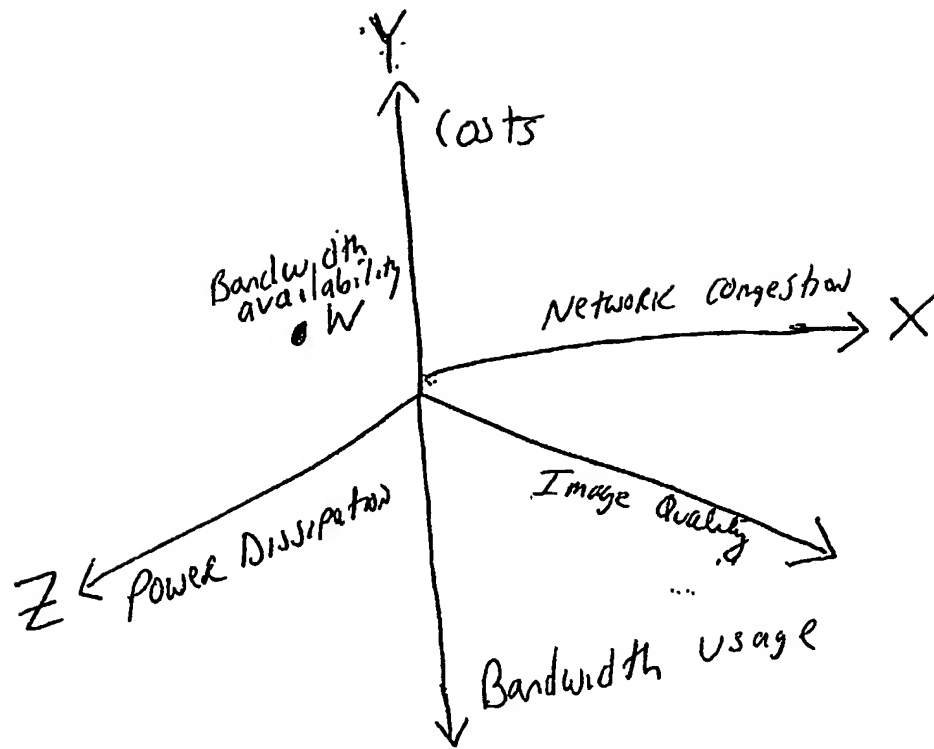 Y
Costs
Bandwidth
availability
W
Network Congestion
X
Image Quality
...
Power Dissipation
Z
Bandwidth usage